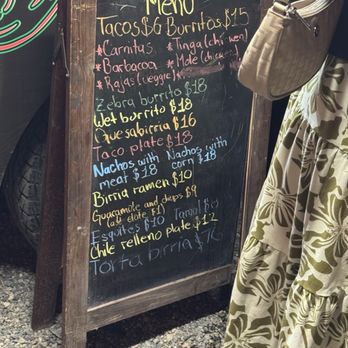 Menu
Tacos $6 Burritos $15
*Carnitas *Tinga (chicken)
*Barbacoa *Mole (chicken)
*Rajas (veggie)
Zebra burrito $18
Wet burrito $18
Quesabirria $16
Taco plate $18
Nachos with Nachos with
meat $18 corn $18
Birria ramen $10
Guacamole and chips $9
(add elote $1)
Esquites $10 Tamal $8
Chile relleno plate $12
Torta birria $16